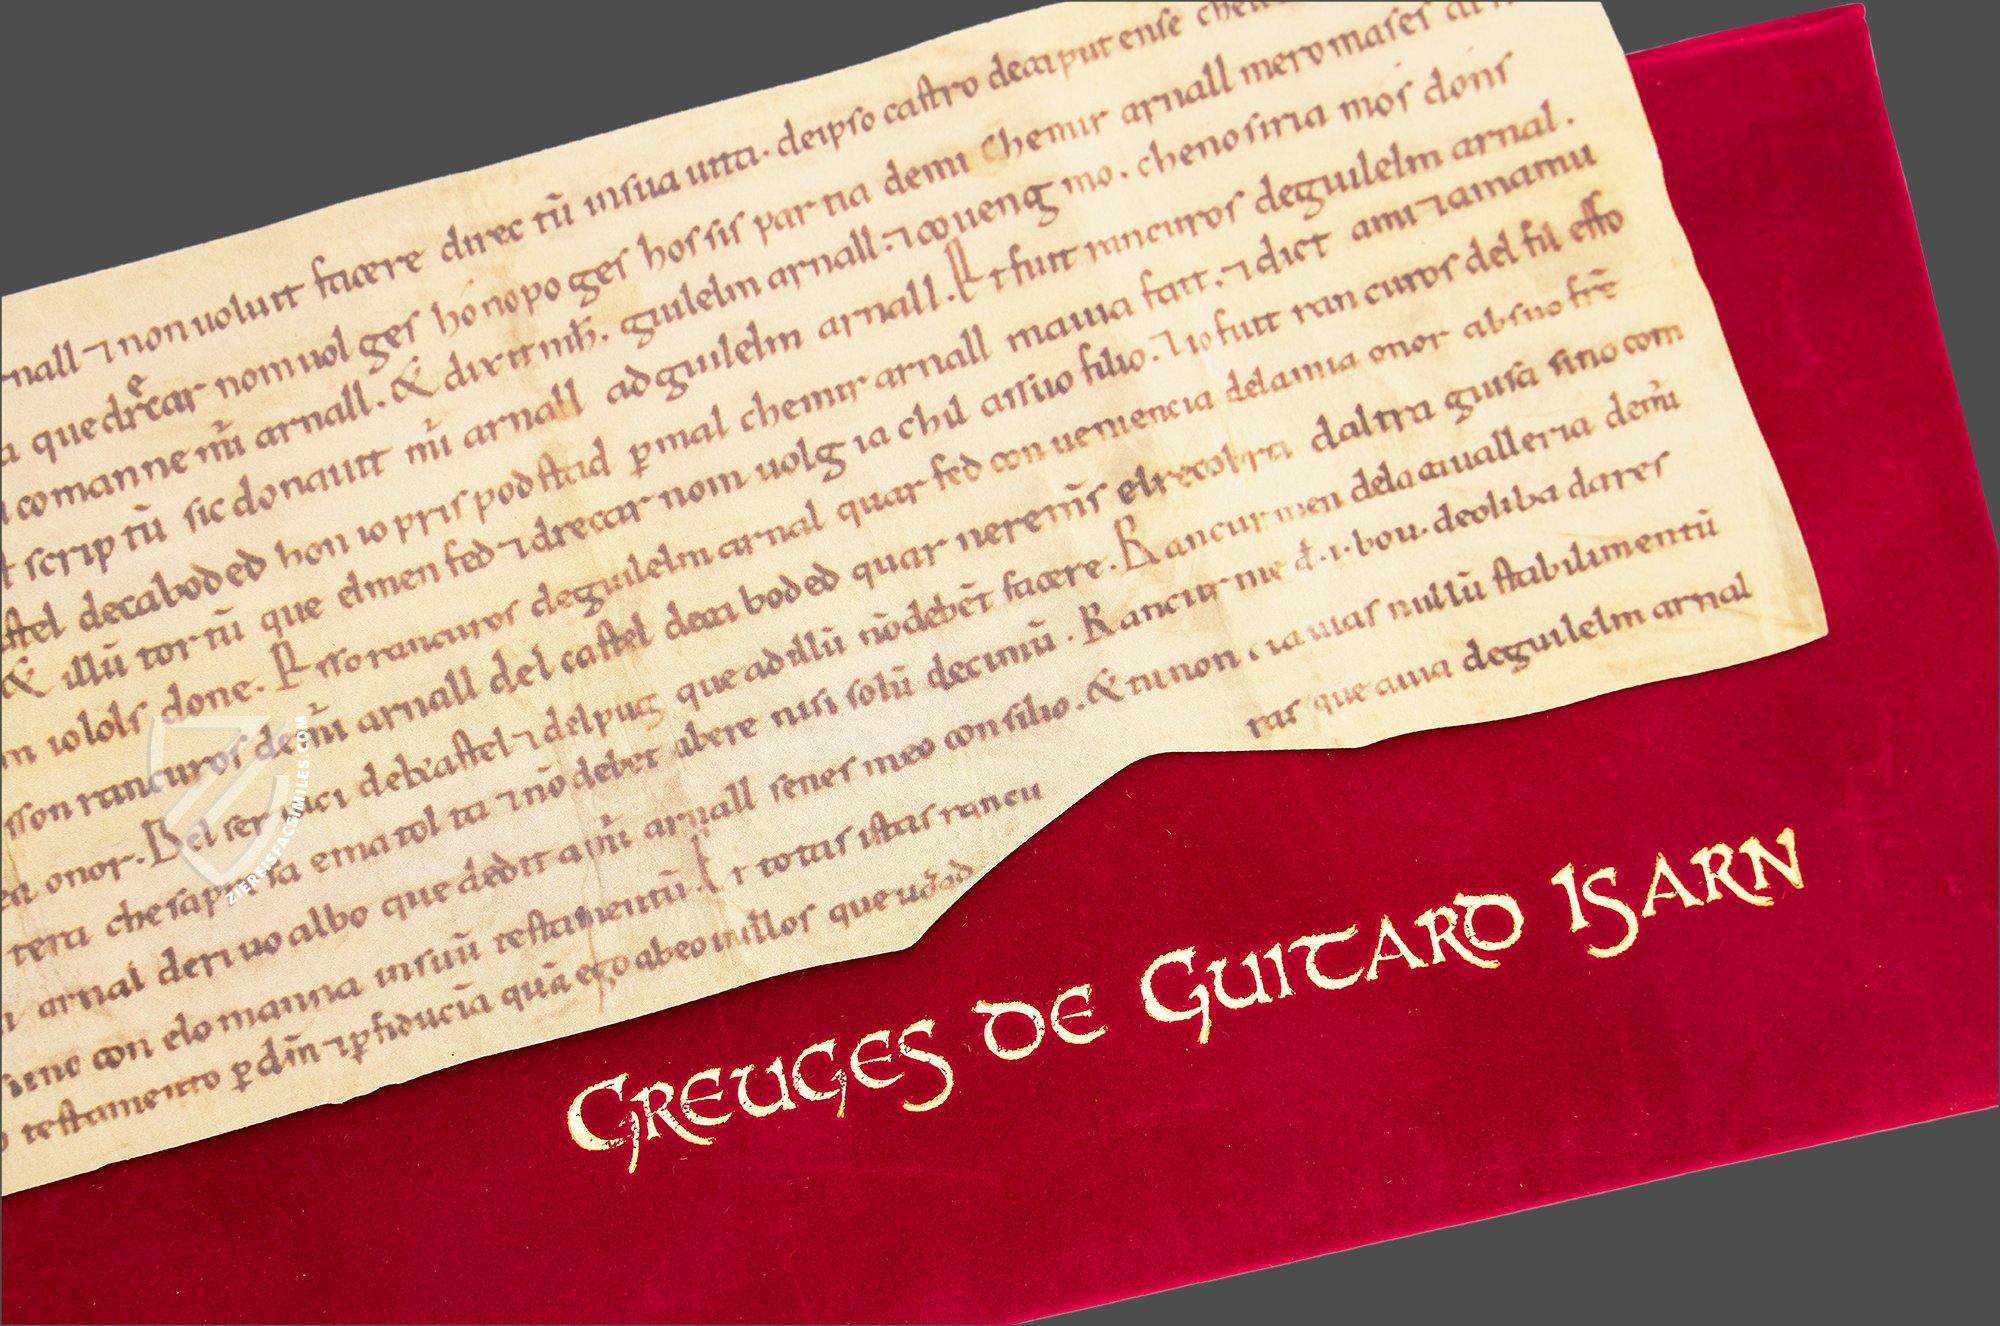 rnall ⁊ non uoluit facere directũ insua uita. deipso castro decaputense che
a que drecar nom uol ges honopoges hossis partia demi Chemir arnall mero mases
comanne mĩr arnall. & dixit mh̃. guilelm arnall. ⁊ coueng mo. chenosiria mos dons
scriptũ sic donauit mĩr arnall ad guilelm arnall. Et fuit rancuros deguilelm arnal.
castel decaboded hon io pris podstad ꝑ mal chemir arnall mauia fait. ⁊ dict ami ⁊ amamu
& illũ tortũ que elmen fed ⁊ drecar nom uolg ia chil assuo filio. ⁊ io fuit rancuros del fil esso
m iolols done. Esso rancuros deguilelm arnal quar fed conueniencia delamia onor absuo frẽ
sson rancuros demĩr arnall del castel decaboded quar neremĩs elrecobra daltra guisa sino com
onor. Del seruici delcastel ⁊ delpug que ad illũ nõ debẽt facere. Rancur men dela caualleria demĩr
tera che sapria ema tolta ⁊ nõ debet abere nisi solũ decimũ. Rancur me d. i. bou. deoliba dares
arnal deriuo albo que dedit a mĩr arnall senes meo consilio. & tu non ciauias nullũ stabilimentũ
sino con elo manna insuũ testamentũ. Et totas istas rancu
ras que auia deguilelm arnal
testamento ꝑ dĩn ⁊ ꝑ fiducia quã ego abeo inillos que
GREUGES DE GUITARD ISARN
ZIEREISFACSIMILES.COM